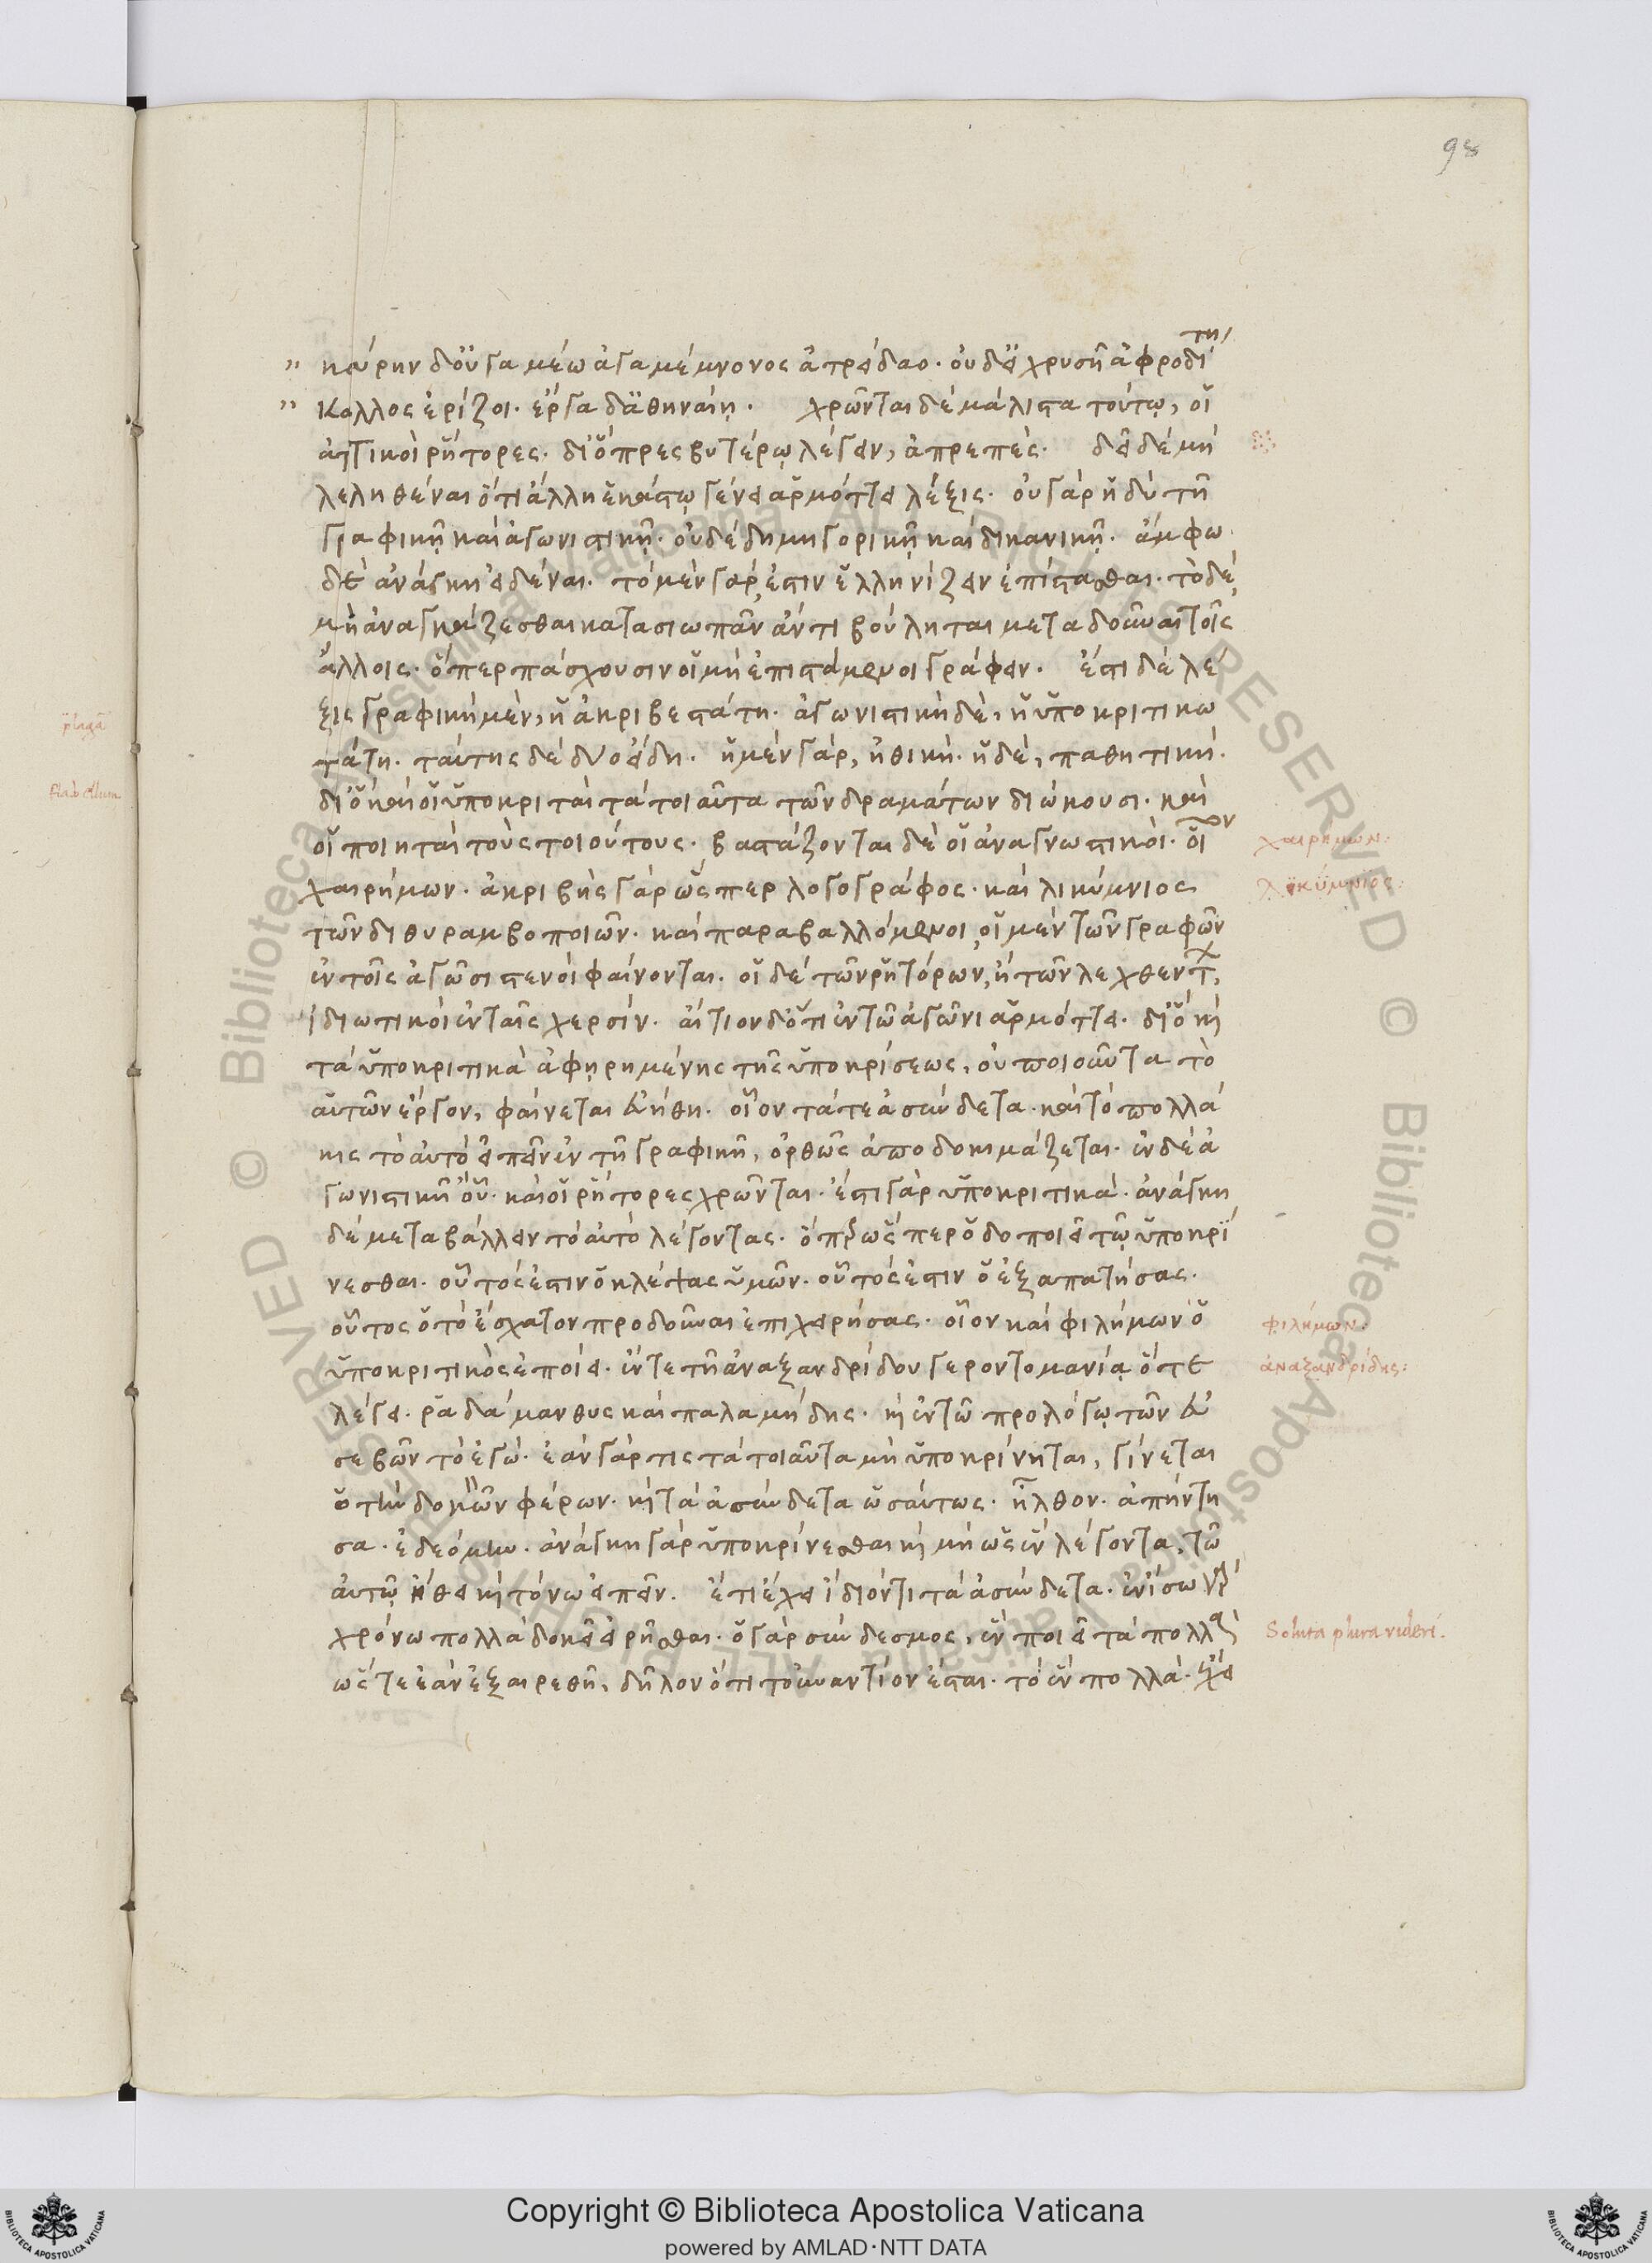 98
κούρην δ' οὐ γαμέω ἀγαμέμνονος ἀτρείδαο. οὐδ' εἰ χρυσῆ ἀφροδίτη
κάλλος ἐρίζοι. ἔργα δ' ἀθηναίη. χρῶνται δὲ μάλιστα τούτῳ, οἱ
ἀττικοὶ ῥήτορες. διὸ πρεσβυτέρῳ λέγειν, ἀπρεπές. δεῖ δὲ μὴ
λεληθέναι ὅτι ἄλλη ἑκάστῳ γένει ἁρμόττει λέξις. οὐ γὰρ ἡ αὐτὴ
γραφικὴ καὶ ἀγωνιστική. οὐδὲ δημηγορικὴ καὶ δικανική. ἄμφω
δὲ ἀνάγκη εἰδέναι. τὸ μὲν γάρ, ἐστιν ἑλληνίζειν ἐπίστασθαι. τὸ δέ,
μὴ ἀναγκάζεσθαι κατασιωπᾶν ἄν τι βούληται μεταδοῦναι τοῖς
ἄλλοις. ὅπερ πάσχουσιν οἱ μὴ ἐπιστάμενοι γράφειν. ἔστι δὲ λέ
ξις γραφικὴ μέν, ἡ ἀκριβεστάτη. ἀγωνιστικὴ δέ, ἡ ὑποκριτικω
τάτη. ταύτης δὲ δύο εἴδη. ἡ μὲν γάρ, ἠθική. ἡ δέ, παθητική.
διὸ καὶ οἱ ὑποκριταὶ τὰ τοιαῦτα τῶν δραμάτων διώκουσι. καὶ
οἱ ποιηταὶ τοὺς τοιούτους. βαστάζονται δὲ οἱ ἀναγνωστικοί. οἷον
χαιρήμων. ἀκριβὴς γὰρ ὥσπερ λογογράφος. καὶ λικύμνιος
τῶν διθυραμβοποιῶν. καὶ παραβαλλόμενοι, οἱ μὲν τῶν γραφῶν
ἐν τοῖς ἀγῶσι στενοὶ φαίνονται. οἱ δὲ τῶν ῥητόρων, ἢ τῶν λεχθέντων,
ἰδιωτικοὶ ἐν ταῖς χερσίν. αἴτιον δ' ὅτι ἐν τῷ ἀγῶνι ἁρμόττει. διὸ καὶ
τὰ ὑποκριτικὰ ἀφῃρημένης τῆς ὑποκρίσεως, οὐ ποιοῦντα τὸ
αὑτῶν ἔργον, φαίνεται εὐήθη. οἷον τά τε ἀσύνδετα. καὶ τὸ πολλά
κις τὸ αὐτὸ εἰπεῖν ἐν τῇ γραφικῇ, ὀρθῶς ἀποδοκιμάζεται. ἐν δὲ ἀ
γωνιστικῇ οὔ. καὶ οἱ ῥήτορες χρῶνται. ἔστι γὰρ ὑποκριτικά. ἀνάγκη
δὲ μεταβάλλειν τὸ αὐτὸ λέγοντας. ὅπερ ὥσπερ ὁδοποιεῖ τῷ ὑποκρί
νεσθαι. οὗτός ἐστιν ὁ κλέψας ὑμῶν. οὗτός ἐστιν ὁ ἐξαπατήσας.
οὗτος ὁ τὸ ἔσχατον προδοῦναι ἐπιχειρήσας. οἷον καὶ φιλήμων ὁ
ὑποκριτικὸς ἐποίει. ἔν τε τῇ ἀναξανδρίδου γεροντομανίᾳ ὅτε
λέγει. ῥαδάμανθυς καὶ παλαμήδης. καὶ ἐν τῷ προλόγῳ τῶν εὐ
σεβῶν τὸ ἐγώ. ἐὰν γάρ τις τὰ τοιαῦτα μὴ ὑποκρίνηται, γίνεται
ὁ τὴν δοκὸν φέρων. καὶ τὰ ἀσύνδετα ὡσαύτως. ἦλθον. ἀπήντη
σα. ἐδεόμην. ἀνάγκη γὰρ ὑποκρίνεσθαι καὶ μὴ ὡς ἓν λέγοντα, τῷ
αὐτῷ ἤθει καὶ τόνῳ εἰπεῖν. ἔτι ἔχει ἴδιόν τι τὰ ἀσύνδετα. ἐν ἴσῳ γὰρ
χρόνῳ πολλὰ δοκεῖ εἰρῆσθαι. ὁ γὰρ σύνδεσμος, ἓν ποιεῖ τὰ πολλά
ὥστε ἐὰν ἐξαιρεθῇ, δῆλον ὅτι τοὐναντίον ἔσται. τὸ ἓν πολλά. ἔχει
χαιρήμων:
λϊκύμνιος:
φιλήμων:
ἀναξανδρίδης:
Soluta plura videri.
Copyright © Biblioteca Apostolica Vaticana
powered by AMLAD·NTT DATA